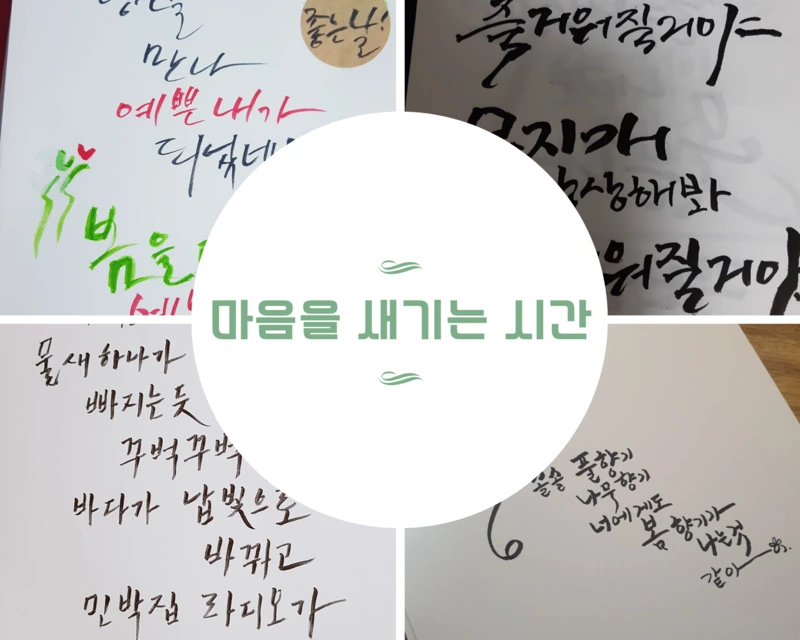 좋은날!
만나
예쁜 내가
되었네
봄을
즐거워질거야
상상해봐
워질거야
마음을 새기는 시간
물새 하나가
빠지는 듯
꾸벅꾸벅
바다가 납빛으로
바뀌고
민박집 라디오가
솔솔 풀향기
나무향기
너에게도
봄 향기가
나는것
같아